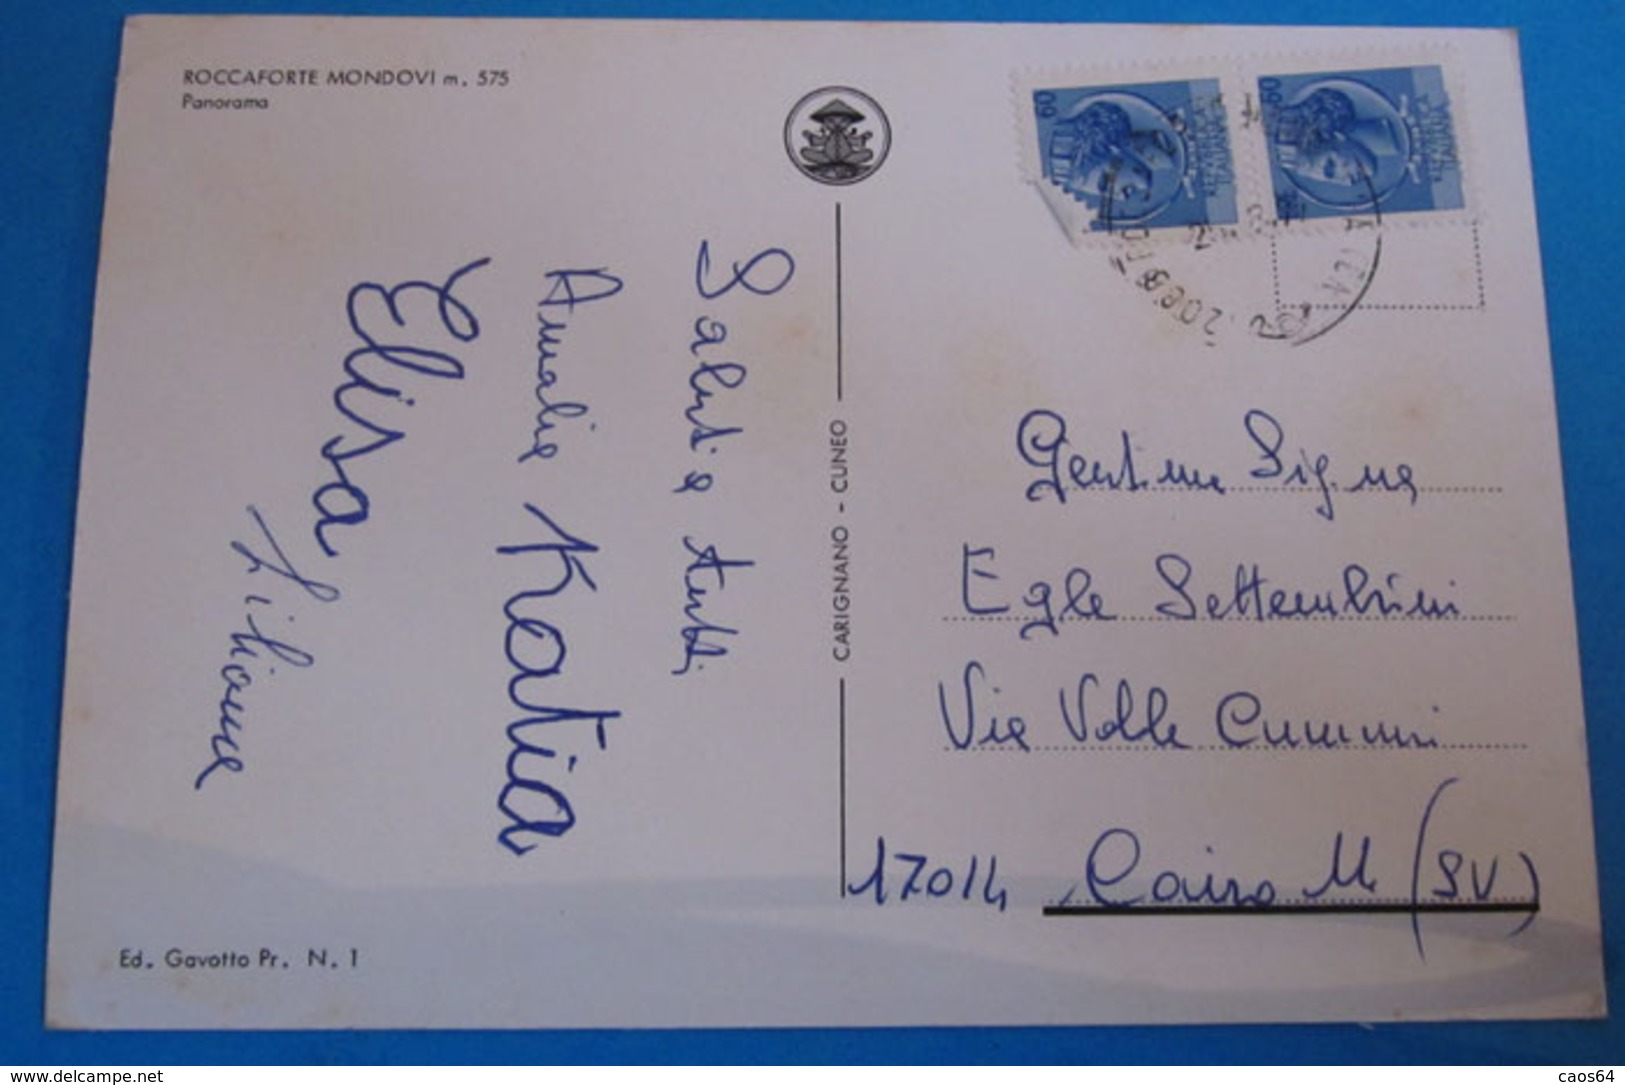 ROCCAFORTE MONDOVI m. 575
Panorama
Saluti a tutti
Amalia Katia
Elisa
Liliana
Ed. Gavotto Pr. N. 1
CARIGNANO - CUNEO
60
60
REPUBBLICA
ITALIANA
Gent.ma Sig.na
Egle Settembrini
Via Valle
17014 Cairo M. (SV)
www.delcampe.net
caos64